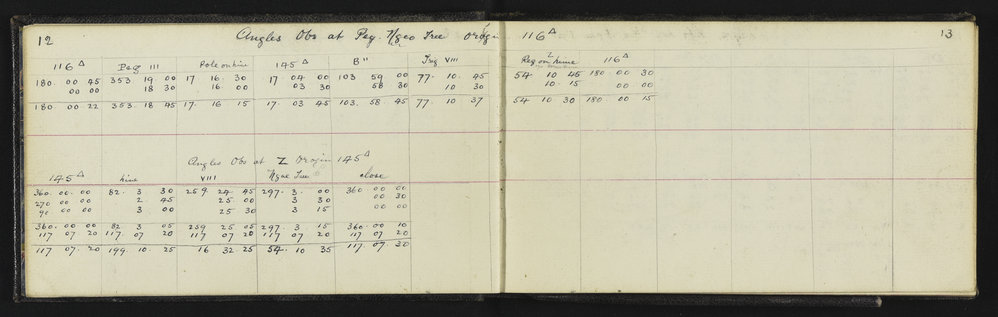 12
Angles Obs at Peg. Ngao Tree Orogin 116△
13
116△ Peg III Pole on line 145△ B" Trig VIII Peg on line Z 116△
180 00 45 353 19 00 17 16 30 17 04 00 103 59 00 77. 10. 45 54 10 45 180 00 30
00 00 18 30 16 00 03 30 58 30 10 30 10 15 00 00
180 00 22 353. 18 45 17. 16 15 17. 03 45 103. 58 45 77 10 37 54 10 30 180 00 15
Angles Obs at Z Orogin 145△
145△ line VIII Ngae Tree close
360. 00. 00 82. 3 30 259 24 45 297. 3. 00 360 00 00
270 00 00 2 45 25 00 3 30 00 30
90 00 00 3 00 25 30 3 15 00 00
360. 00 00 82 3 05 259 25 05 297. 3. 15 360. 00 10
117 07 20 117. 07 20 117 07 20 117 07 20 117 07 20
117 07. 20 199. 10. 25 16 32. 25 54. 10 35 117 07 30